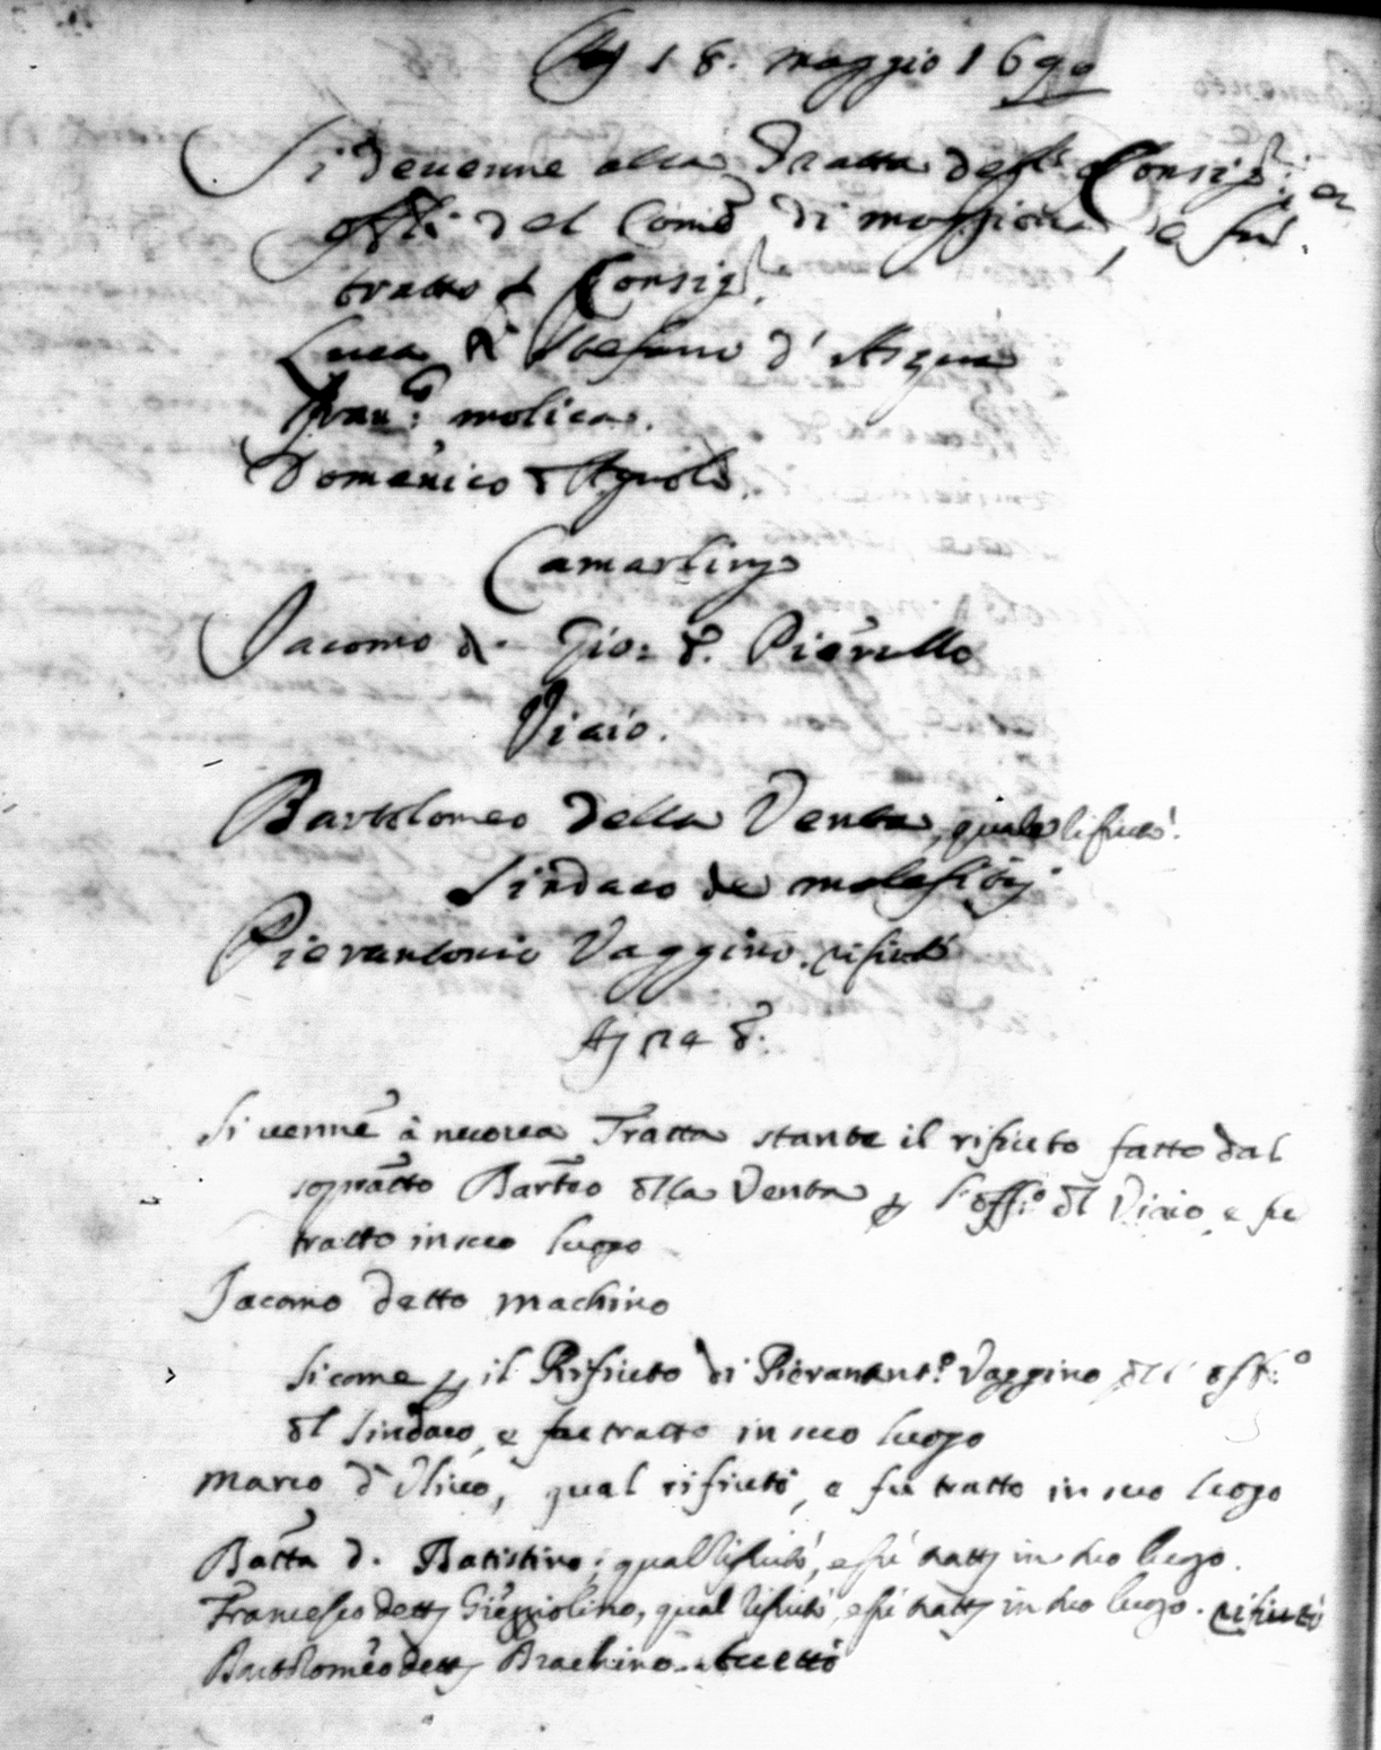 Adj 18. maggio 1690
Si devenne alla Tratta delli Consig:ri et
offli del Comē di moggiona, e fu
tratto p Consigr.
Luca di Stefano d' Asqua
Fran:co molica.
Domenico d Agnolo.
Camarlingo
Jacomo d. Gio: d. Pierello
Viaio.
Bartolomeo della Venta, quale rifiutò.
Sindaco de malefitij
Pierantonio Vaggino. rifiutò
Adj d:
Si venne à nuova Tratta stante il rifiuto fatto dal
sopratto Barteo dlla Venta p l'off:o dl Viaio, e fu
tratto in suo luogo
Jacomo detto machino
Sicome p il Rifiuto di Pieranant:o Vaggino dll' off:o
dl Sindaco, e fu tratto in suo luogo
marco d' Ulivo, qual rifiutò, e fu tratto in suo luogo
Batta d. Batistino; qual rifiutò, e fù tratto in suo luogo.
Francesco detto qual rifiutò, e fù tratto in suo luogo. rifiutò
Bartolomeo detto Brachino.. accettò